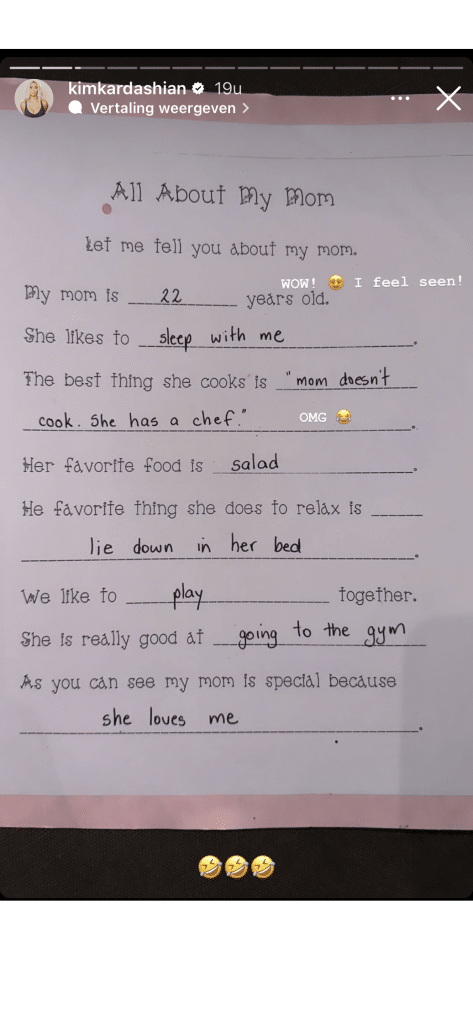 kimkardashian 19u
Vertaling weergeven >
All About My Mom
Let me tell you about my mom.
WOW! 🥹 I feel seen!
My mom is 22 years old.
She likes to sleep with me.
The best thing she cooks is "mom doesn't
cook. She has a chef."
OMG 😂
Her favorite food is salad.
He favorite thing she does to relax is
lie down in her bed.
We like to play together.
She is really good at going to the gym
As you can see my mom is special because
she loves me.
🤣🤣🤣